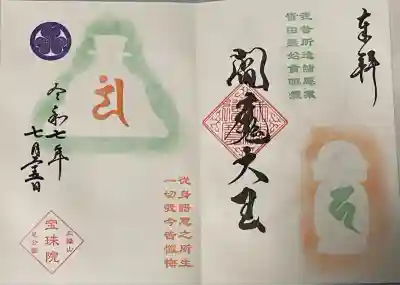 奉拝
我昔所造諸悪業
皆由無始貪瞋癡
閻魔大王
従身語意之所生
一切我今皆懺悔
令和七年
七月
三縁山
宝珠院
芝公園